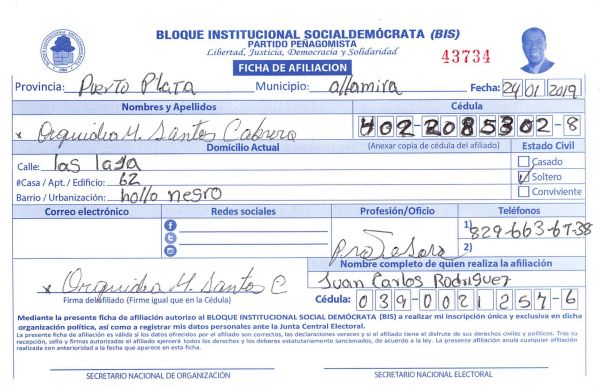 BLOQUE INSTITUCIONAL SOCIALDEMÓCRATA (BIS)
PARTIDO PEÑAGOMISTA
Libertad, Justicia, Democracia y Solidaridad
43734
FICHA DE AFILIACION
Provincia: Puerto Plata Municipio: altamira Fecha: 24 01 2019
Nombres y Apellidos Cédula
x Orquidea M. Santos Cabrera 402-2085302-8
Domicilio Actual (Anexar copia de cédula del afiliado) Estado Civil
Calle: las laja Casado
#Casa / Apt. / Edificio: 62 Soltero
Barrio / Urbanización: hollo negro Conviviente
Correo electrónico Redes sociales Profesión/Oficio Teléfonos
1) 829-663-67-38
Profesora 2)
Nombre completo de quien realiza la afiliación
x Orquidea M. Santos C Juan Carlos Rodriguez
Firma del afiliado (Firme igual que en la Cédula) Cédula: 039-0021257-6
Mediante la presente ficha de afiliación autorizo al BLOQUE INSTITUCIONAL SOCIAL DEMÓCRATA (BIS) a realizar mi inscripción única y exclusiva en dicha
organización política, así como a registrar mis datos personales ante la Junta Central Electoral.
La presente ficha de afiliación es válida si los datos ofrecidos por el afiliado son correctos, las declaraciones veraces y si el afiliado tiene el disfrute de sus derechos civiles y políticos. Tras su
recepción, sello y firmas autorizadas el afiliado ejercerá todos los derechos y los deberes estatutariamente sancionados, de acuerdo a la ley. La presente afiliación anula cualquier afiliación
realizada con anterioridad a la fecha que aparece en esta ficha.
SECRETARIO NACIONAL DE ORGANIZACIÓN SECRETARIO NACIONAL ELECTORAL